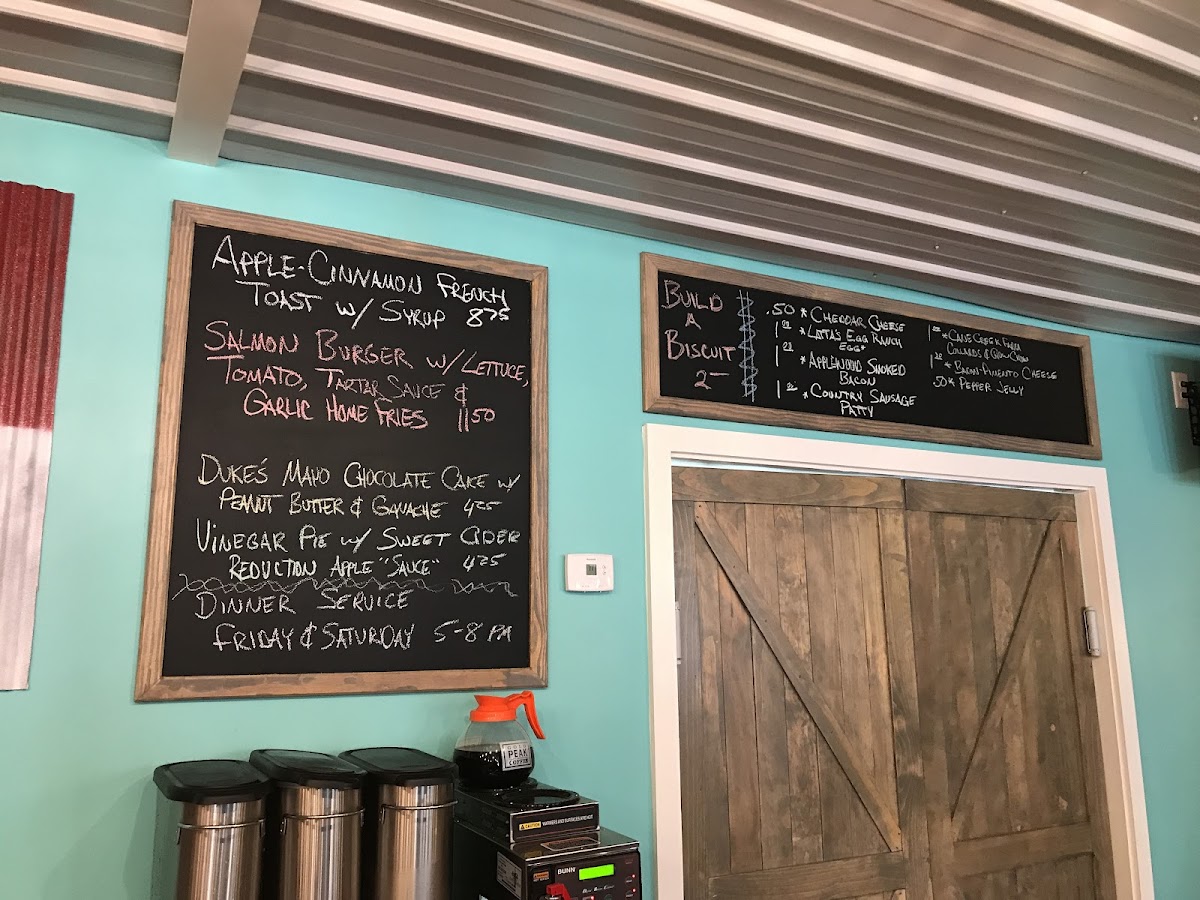 APPLE-CINNAMON FRENCH
TOAST W/ SYRUP 875
SALMON BURGER W/ LETTUCE,
TOMATO, TARTAR SAUCE &
GARLIC HOME FRIES 1150
DUKE'S MAYO CHOCOLATE CAKE W/
PEANUT BUTTER & GANACHE 425
VINEGAR PIE W/ SWEET CIDER
REDUCTION APPLE "SAUCE" 425
DINNER SERVICE
FRIDAY & SATURDAY 5-8 PM
BUILD
A
BISCUIT
2-
.50 * CHEDDAR CHEESE
* LATTA'S EGG RANCH
EGG*
* APPLEWOOD SMOKED
BACON
* COUNTRY SAUSAGE
PATTY
* CANE CREEK FARM
COLLARDS & CHOW CHOW
* BACON-PIMENTO CHEESE
.50 * PEPPER JELLY
PEAK
COFFEE
CAUTION
BUNN